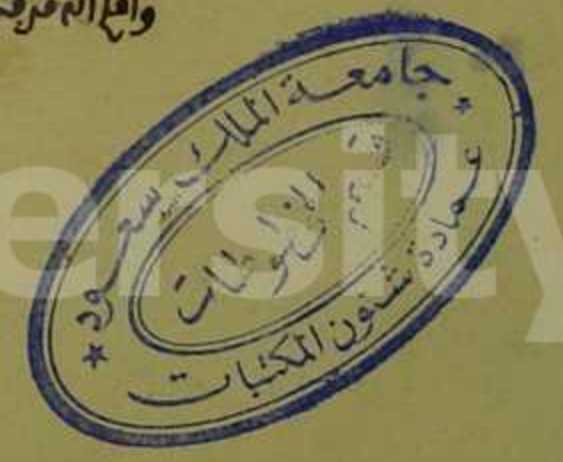 جامعة الملك سعود
قسم
المخطوطات
عمادة شئون المكتبات
ersity